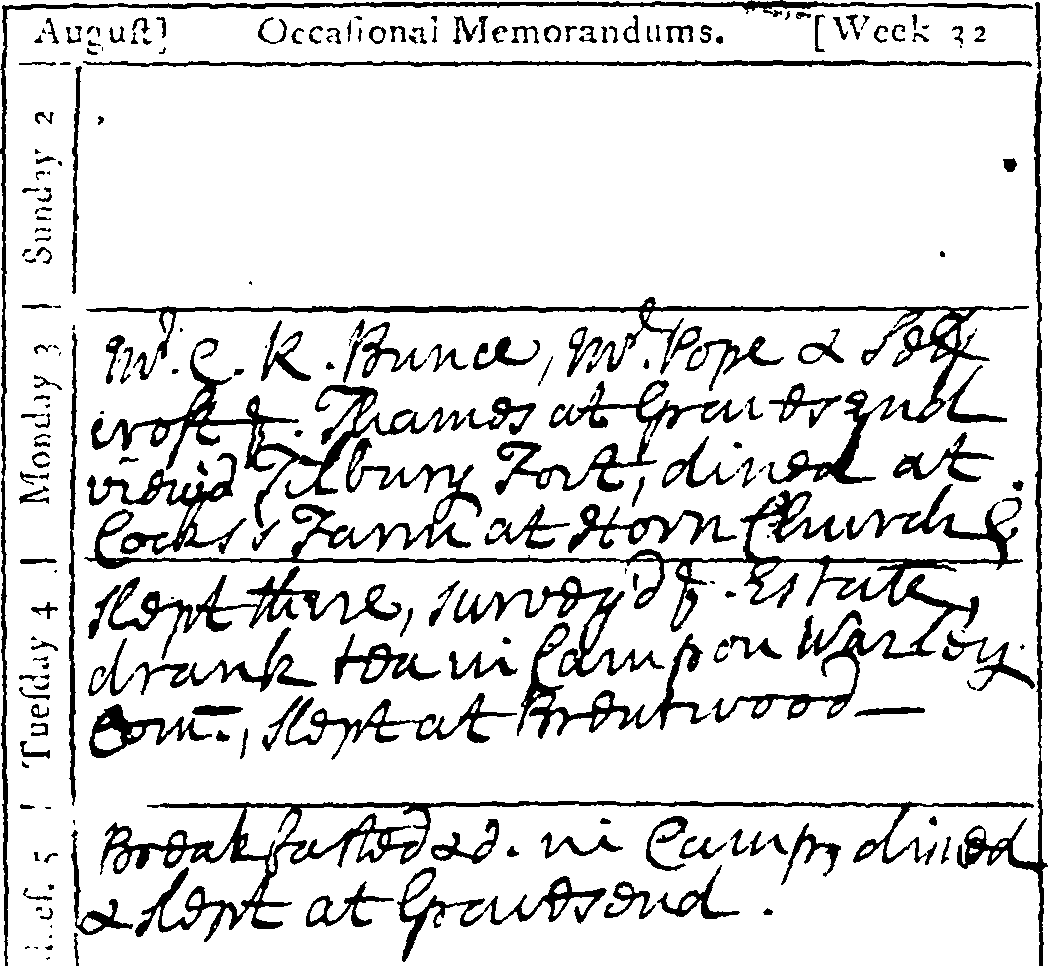 Auguſt] Occaſional Memorandums. [Week 32
Sunday 2
Monday 3
Mr. C. K. Bunce, Mr. Pope & Self
croſt ye. Thames at Gravesend
view'd Tilbury Fort, dined at
Cocks's Farm at Horn Church &
Tueſday 4
slept there, survey'd ye. Estate,
drank tea in Camp on Warley
Com:, slept at Brentwood—
5
Breakfasted &c. in Camp, dined
& slept at Gravesend.